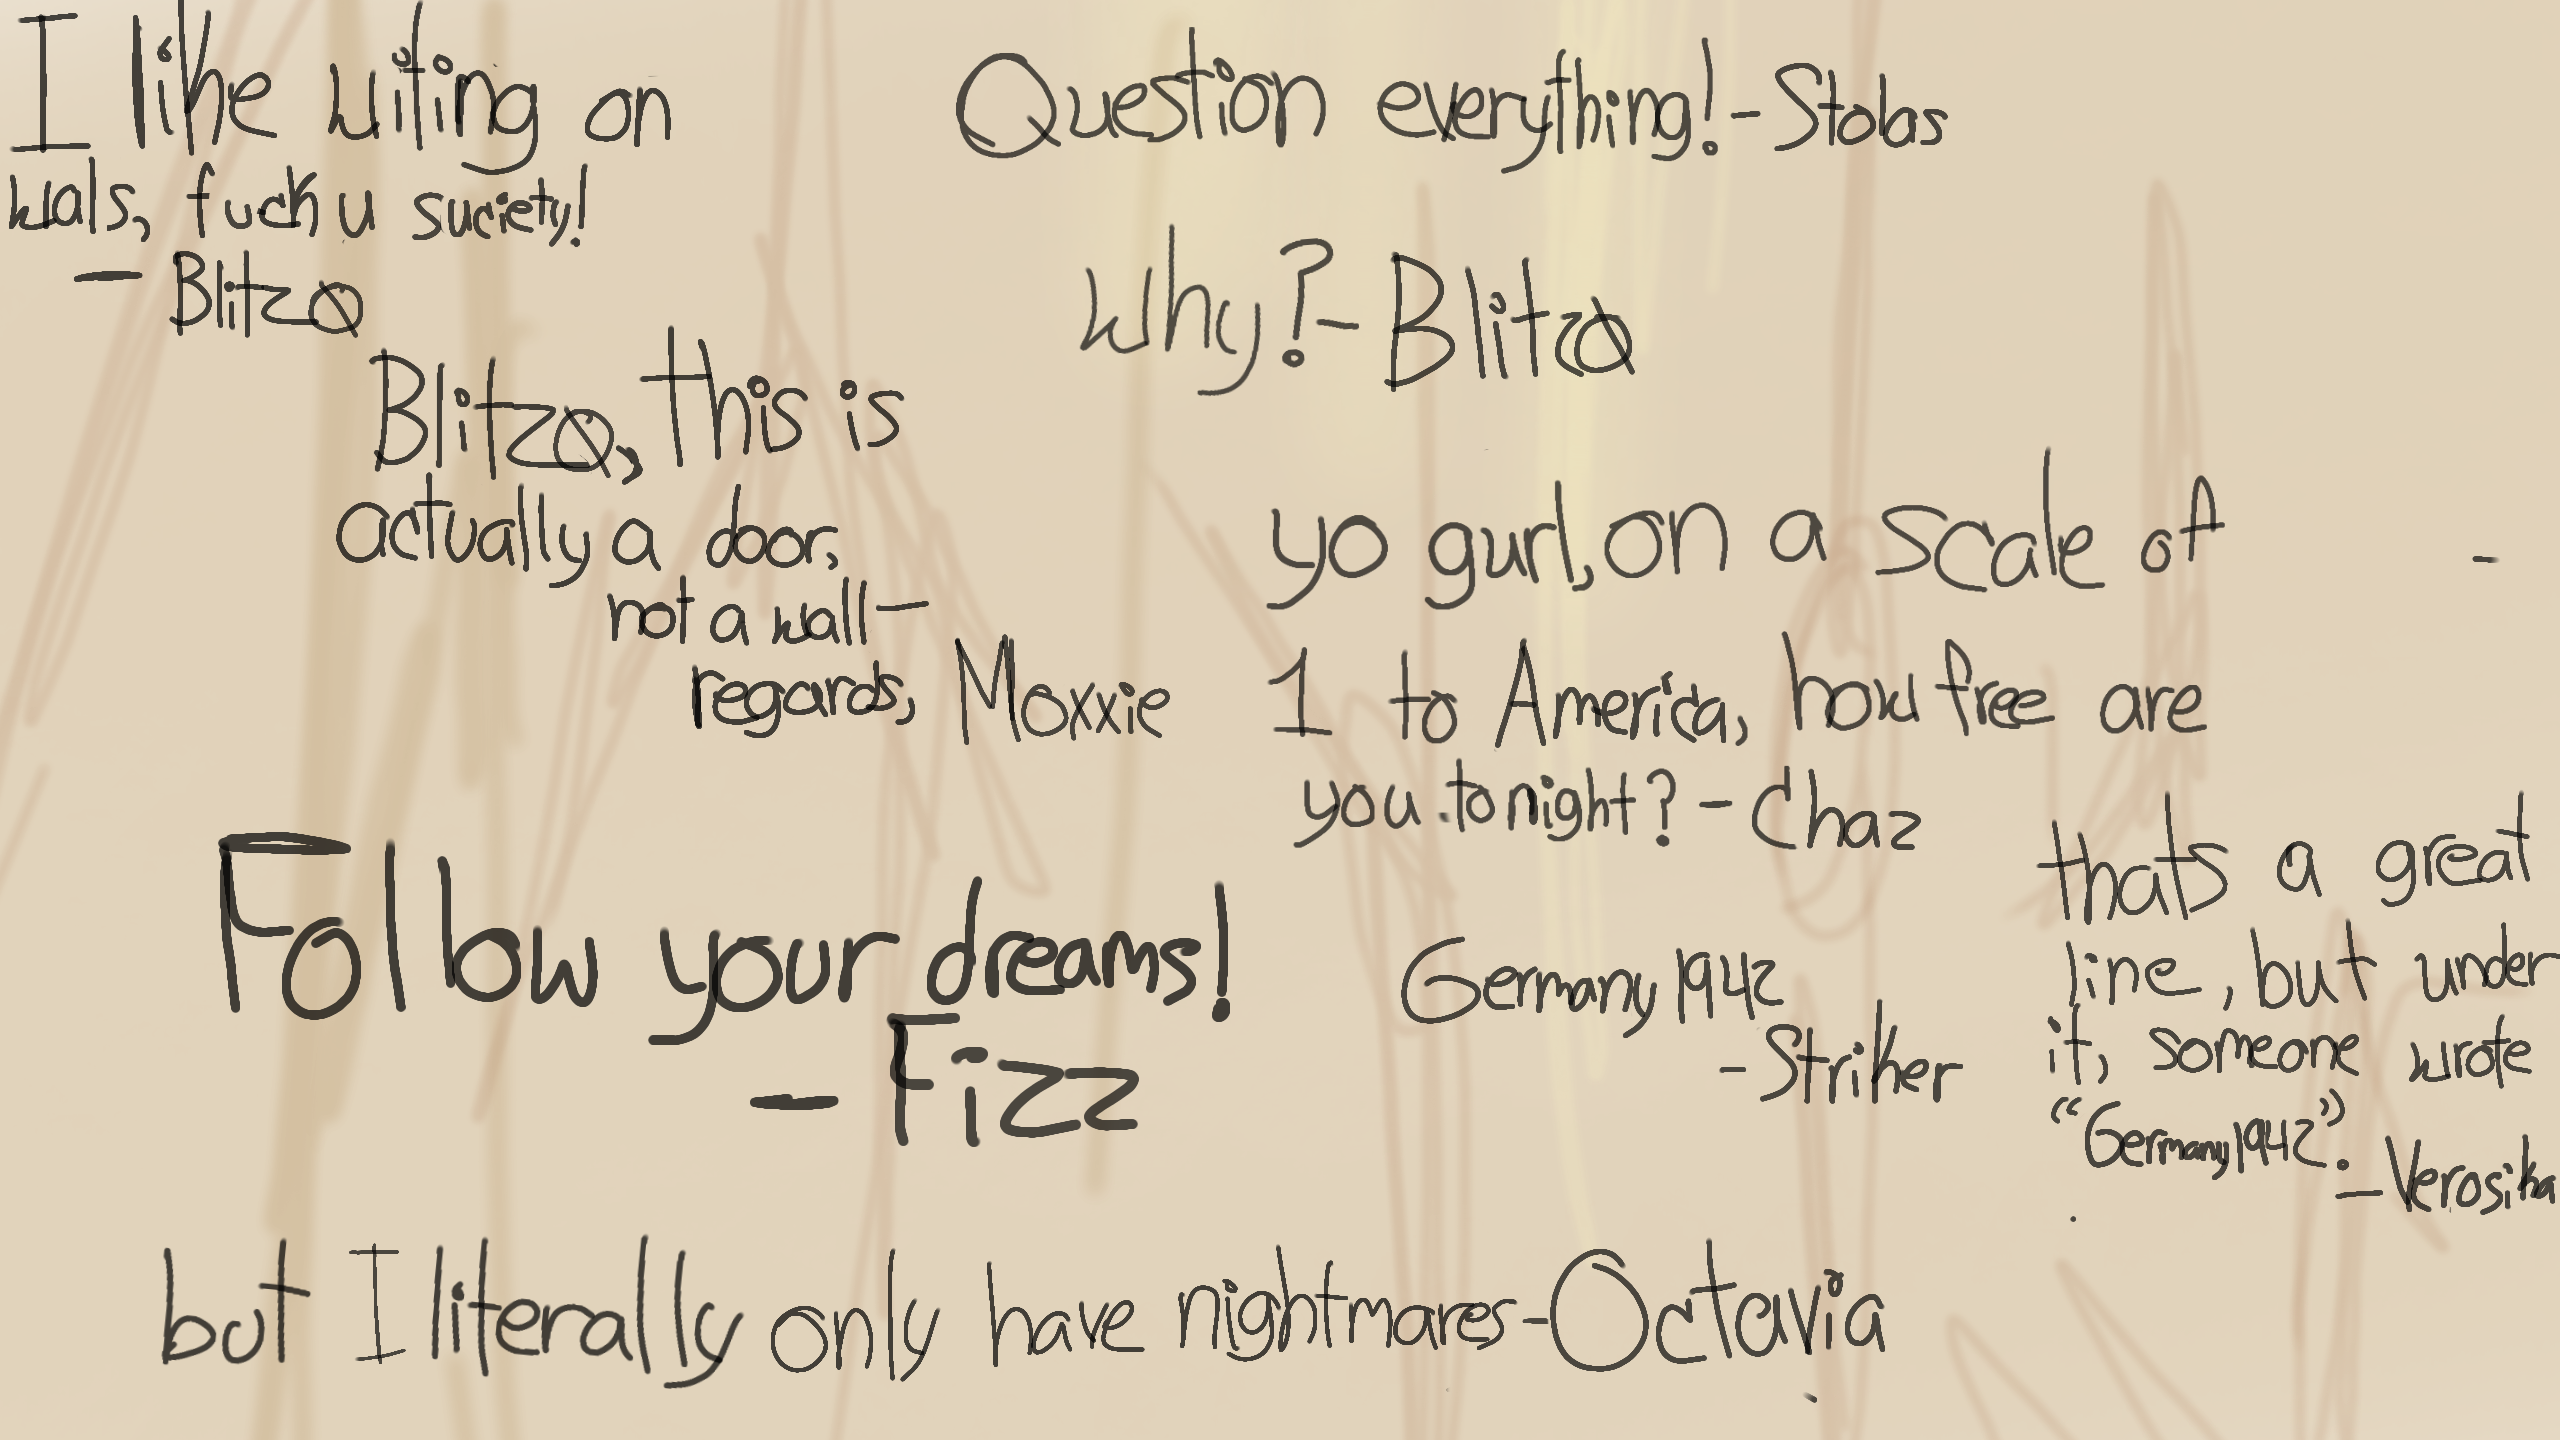 I like witing on
wals, fuck u suciety!
- Blitzø
Blitzø, this is
actually a door,
not a wall -
regards, Moxxie
Question everything! - Stolas
Why? - Blitzø
yo gurl, on a scale of
1 to America, how free are
you tonight? - Chaz
Germany 1942
- Striker
thats a great
line, but under
it, someone wrote
“Germany 1942”.
- Verosika
Follow your dreams!
- Fizz
but I literally only have nightmares - Octavia